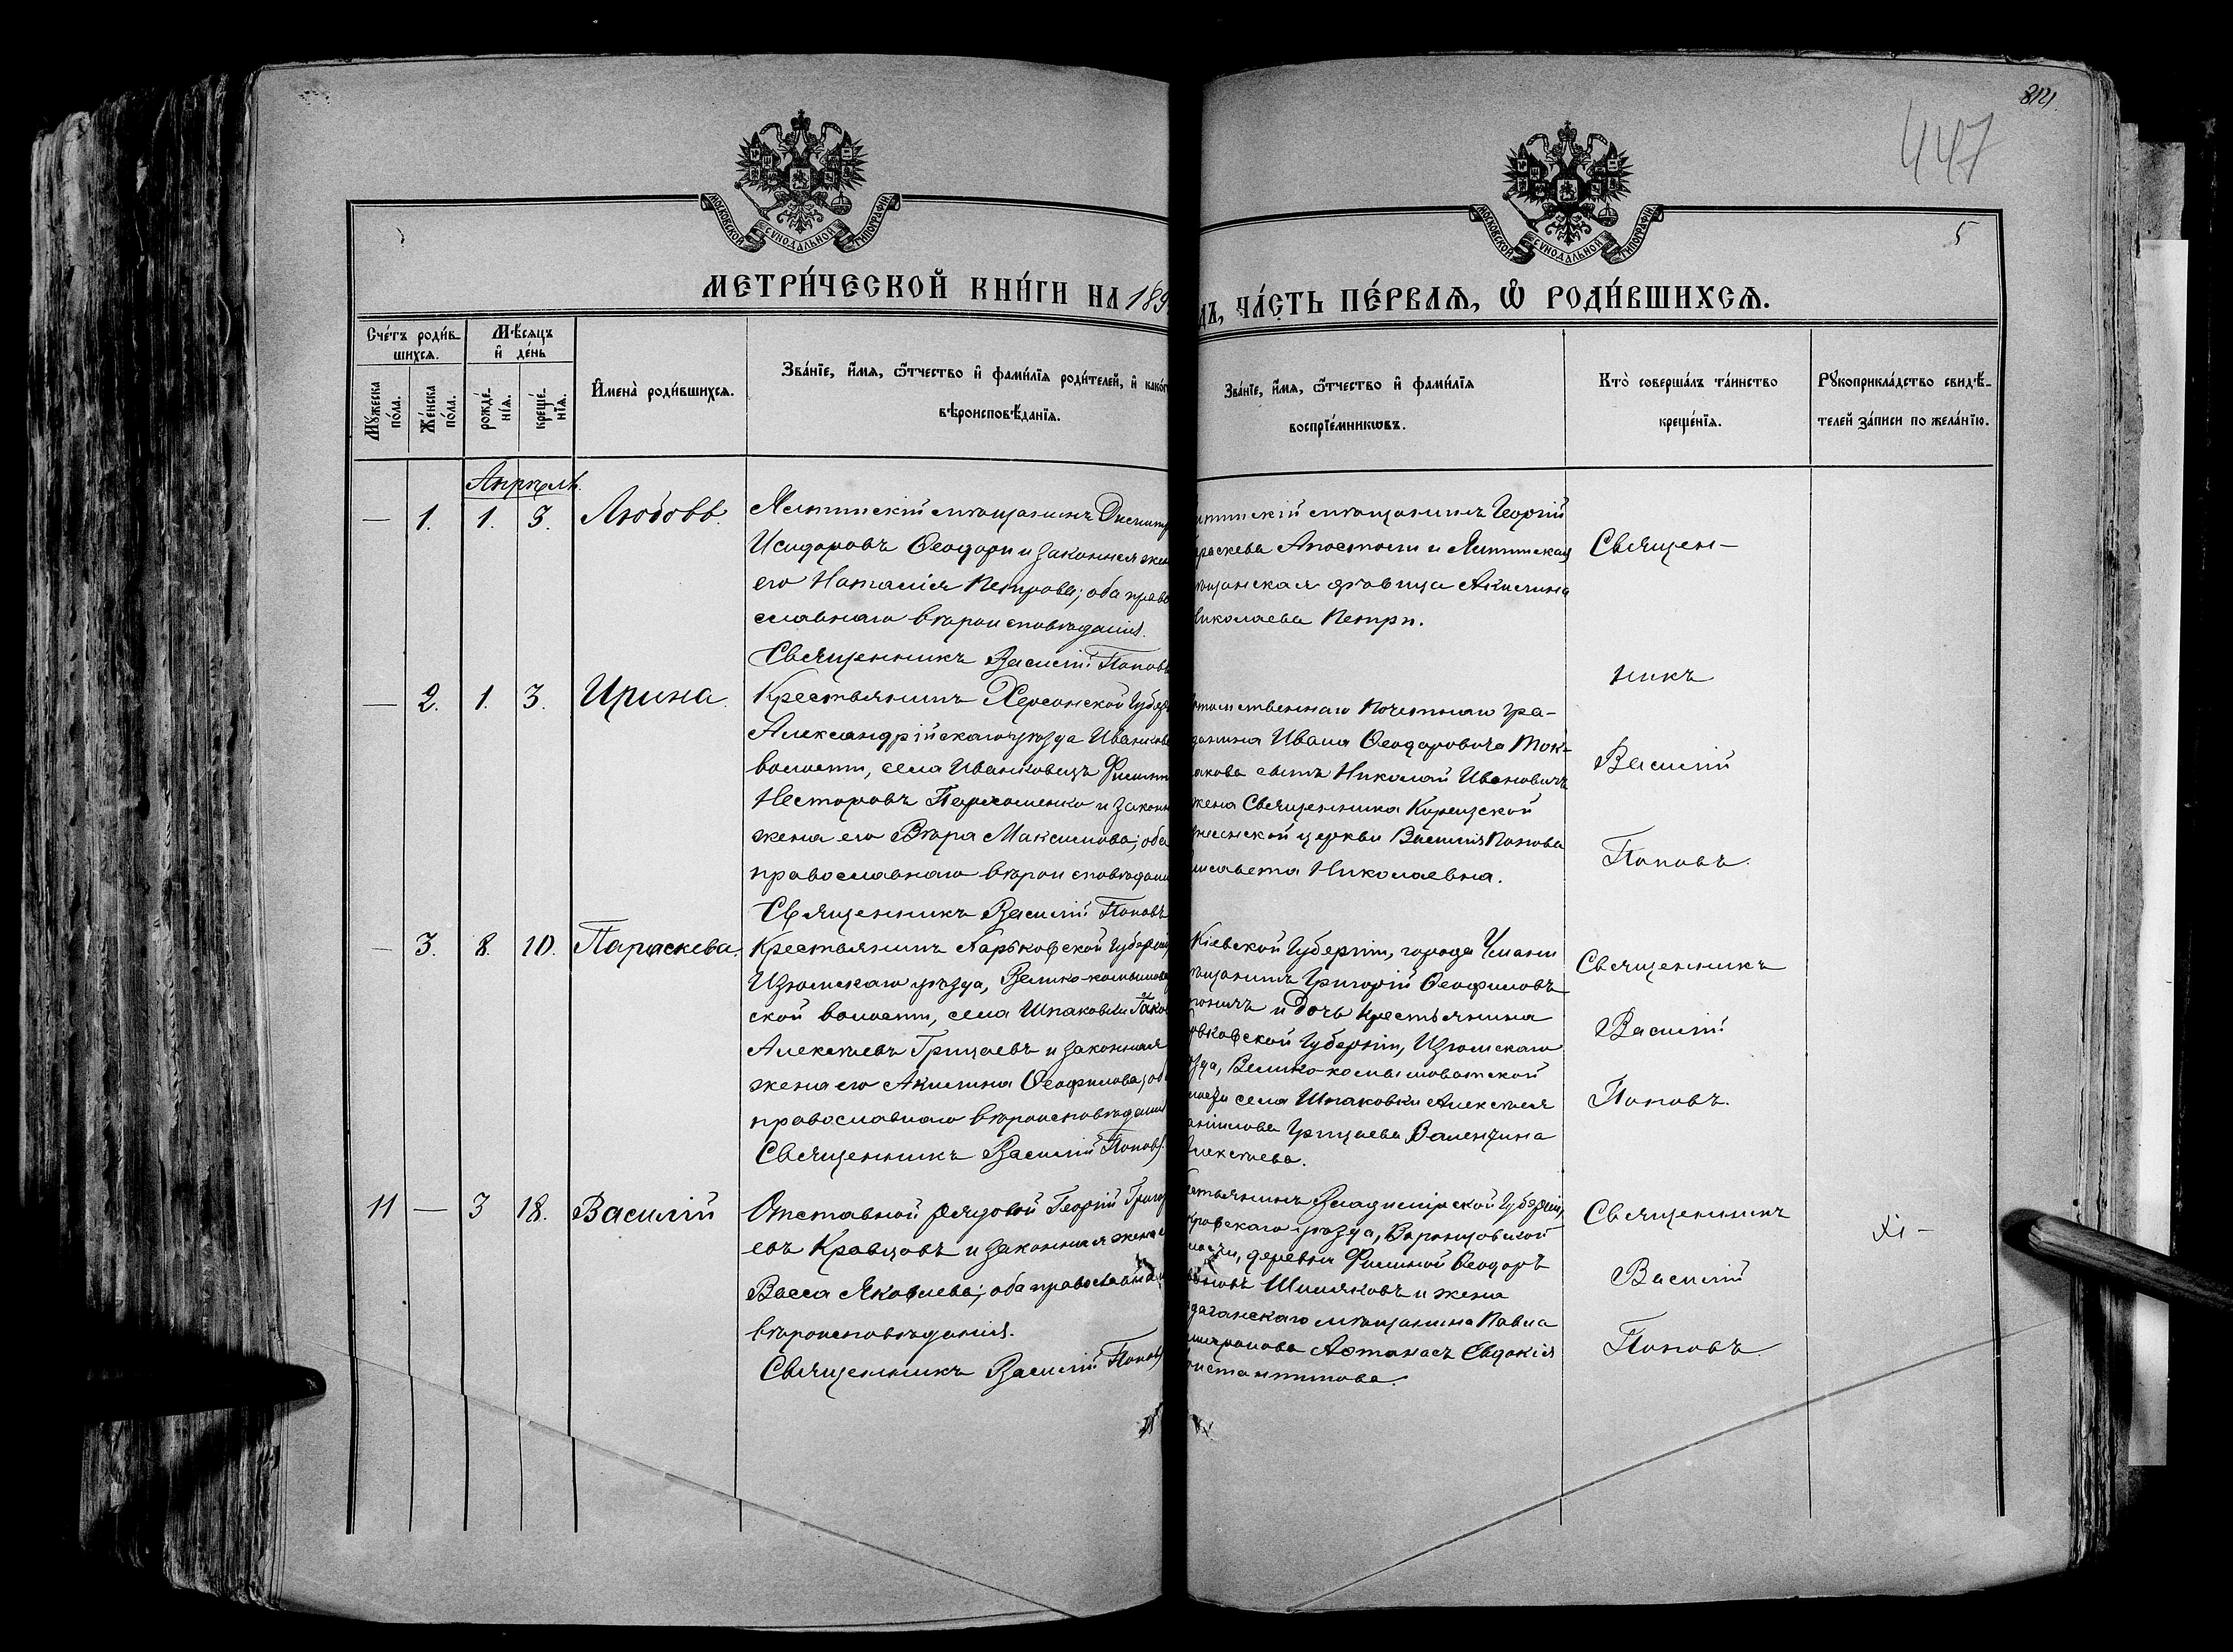 814
447
5
МОСКОВСКОЙ СѴНОДАЛЬНОЙ ТИПОГРАФІИ
МОСКОВСКОЙ СѴНОДАЛЬНОЙ ТИПОГРАФІИ
МЕТРИ́ЧЕСКОЙ КНИ́ГИ НА 189
ДЪ, ЧА́СТЬ ПЕ́РВАЯ, Ѡ РОДИ́ВШИХСЯ.
Сче́тъ роди́в-
шихся.
Мѣ́сяцъ
и де́нь
Му́жеска по́ла.
Же́нска по́ла.
рожде́-
нїя.
креще́-
нїя.
Имена̀ роди́вшихся.
Зва́нїе, и́мя, ѻ́тчество и фами́лїя роди́телей, и како́г
вѣроисповѣ́данїя.
Зва́нїе, и́мя, ѻ́тчество и фами́лїя
воспрїе́мникѡвъ.
Кто̀ соверша́лъ та́инство
креще́нїя.
Рукоприкла́дство свидѣ́-
телей за́писи по жела́нїю.
Апрѣль.
— 1. 1. 3. Любовь.
Ялтинскій мѣщанинъ Димитр
Исидоровъ Ѳеодори и законная жен
его Наталія Петрова; оба право
славнаго вѣроисповѣданія.
Священникъ Василій Поповъ
лтинскій мѣщанинъ Георгій
араскева Апостоли и Ялтинская
ѣщанская дѣвица Акилина
Николаева Петри.
Священ-
никъ
Василій
Поповъ.
— 2. 1. 3. Ирина.
Крестьянинъ Херсонской Губер
Александрійскаго уѣзда Иванков
волости, села Ивановецъ Филипп
Несторовъ Пархоменко и законн
жена его Вѣра Максимова; оба
православнаго вѣроисповѣдані
Священникъ Василій Поповъ
отомственнаго Почетнаго гра-
данина Ивана Ѳеодоровича Ток-
акова сынъ Николай Ивановичъ
жена Священника
церкви Василія Попова
лисавета Николаевна.
— 3. 8. 10. Параскева.
Крестьянинъ Харьковской Губерніи
Изюмскаго уѣзда, Велико-камышев
ской волости, села Шпаковки Іаков
Алексѣевъ Грицаевъ и законная
жена его Акилина Ѳеофилова; об
православнаго вѣроисповѣданія
Священникъ Василій Поповъ.
Кіевской Губерніи, города Умани
ѣщанинъ Григорій Ѳеофиловъ
и дочь крестьянина
рьковской Губерніи, Изюмскаго
ѣзда, Велико-комышоватской
лости села Шпаковки Алексѣя
аніилова Грицаева Валентина
Алексѣева.
Священникъ
Василій
Поповъ.
11 — 3 18. Василій
Отставной рядовой Георгій Григор
евъ Кравцовъ и законная жена е
Васса Яковлева; оба православна
вѣроисповѣданія.
Священникъ Василій Поповъ
естьянинъ Владимірской Губерніи,
кровскаго уѣзда, Воронцовской
лости, деревни Филиной Ѳеодоръ
Шишляковъ и жена
мѣщанина Павла
Афанасъ Евдокія
онстантинова.
Священникъ
Василій
Поповъ